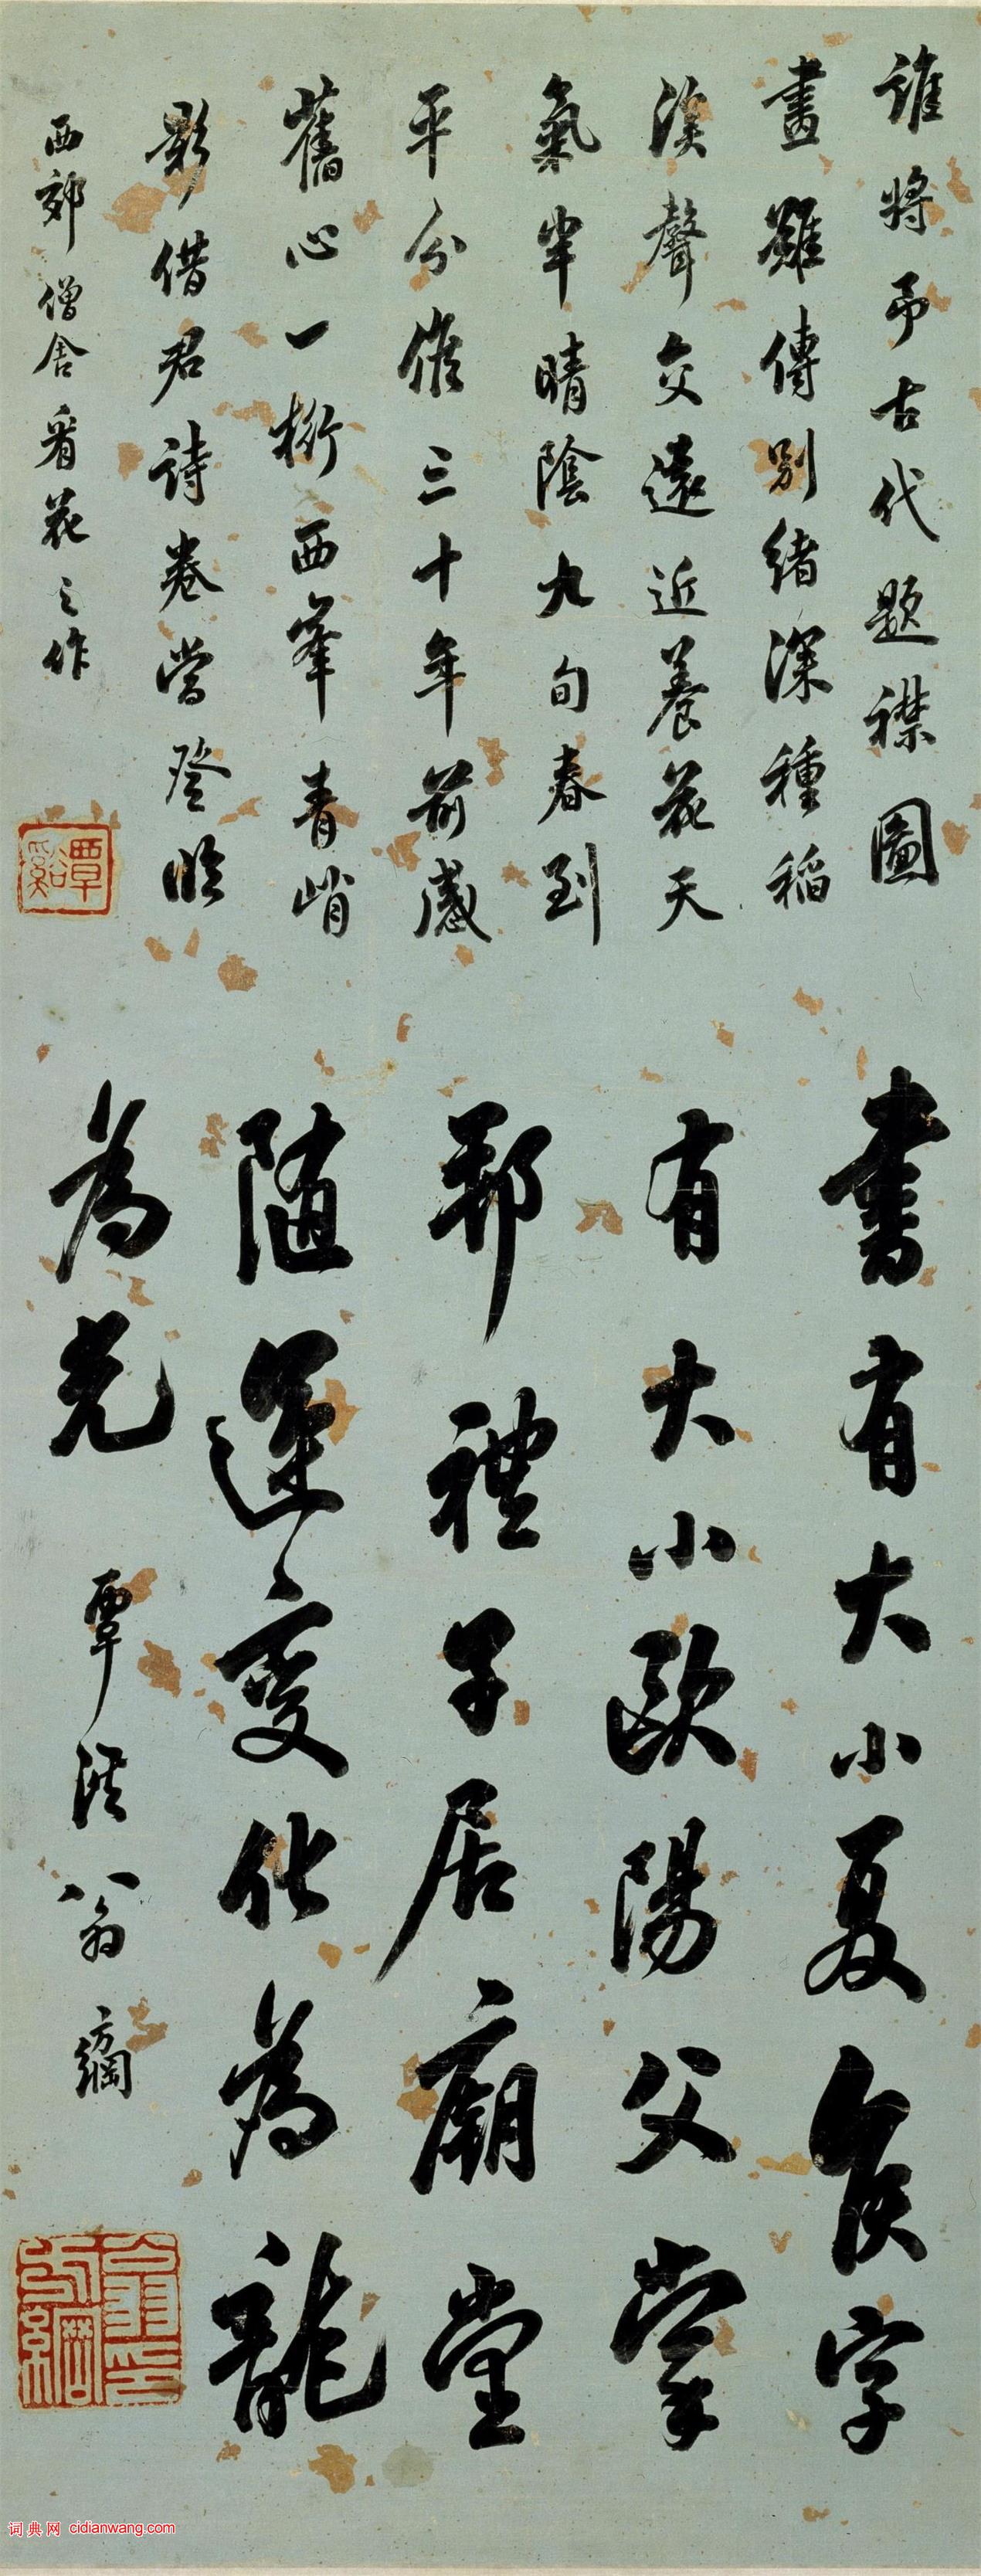 誰將弔古代題襟圖
畫難傳別緒深種稻
溪聲交遠近養花天
氣半晴陰九旬春到
平分候三十年前感
舊心一桁西峯青峭
影借君詩卷當登臨
西郊僧舍看花之作
覃谿
書有大小夏侯字
有大小歐陽父掌
邦禮子居廟堂
隨運變化為龍
為光 覃溪翁方綱
翁方綱印
词典网 cidianwang.com